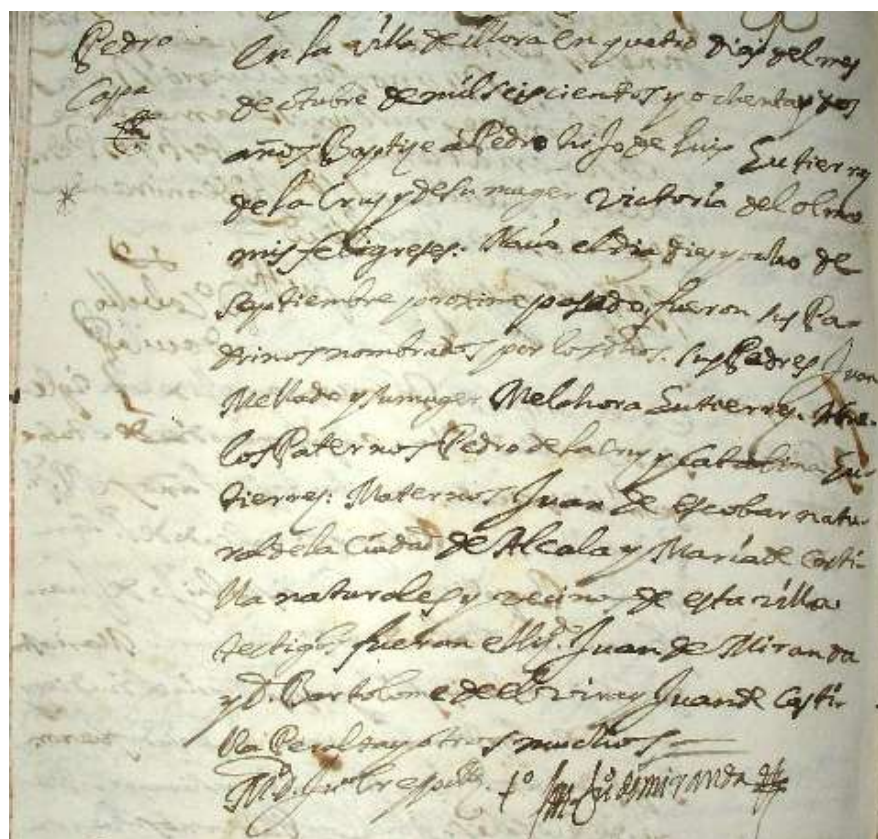 Pedro
En la villa de illora en quatro dias del mes
de otubre de mil seiscientos y ochenta y dos
años Baptize â Pedro hijo de Luis Gutierrez
de la Cruz y de su muger Victoria del olmo
mis feligreses. Nacio el dia dies y ocho de
Septiembre proximo pasado, fueron sus Pa-
drinos nombrados por los dhos. sus Padres Juan
Mellado y su muger Melchora Gutierres. Abue-
los Paternos Pedro de la Cruz y Catalina Gu-
tierres: Maternos Juan de escobar natu-
ral de la Ciudad de Alcala y María de Casti-
lla naturales y vecinos de esta villa
testigos fueron el Juan de Miranda
y D. Bartolome de y Juan de Casti-
lla Peralta y otros muchos
miranda